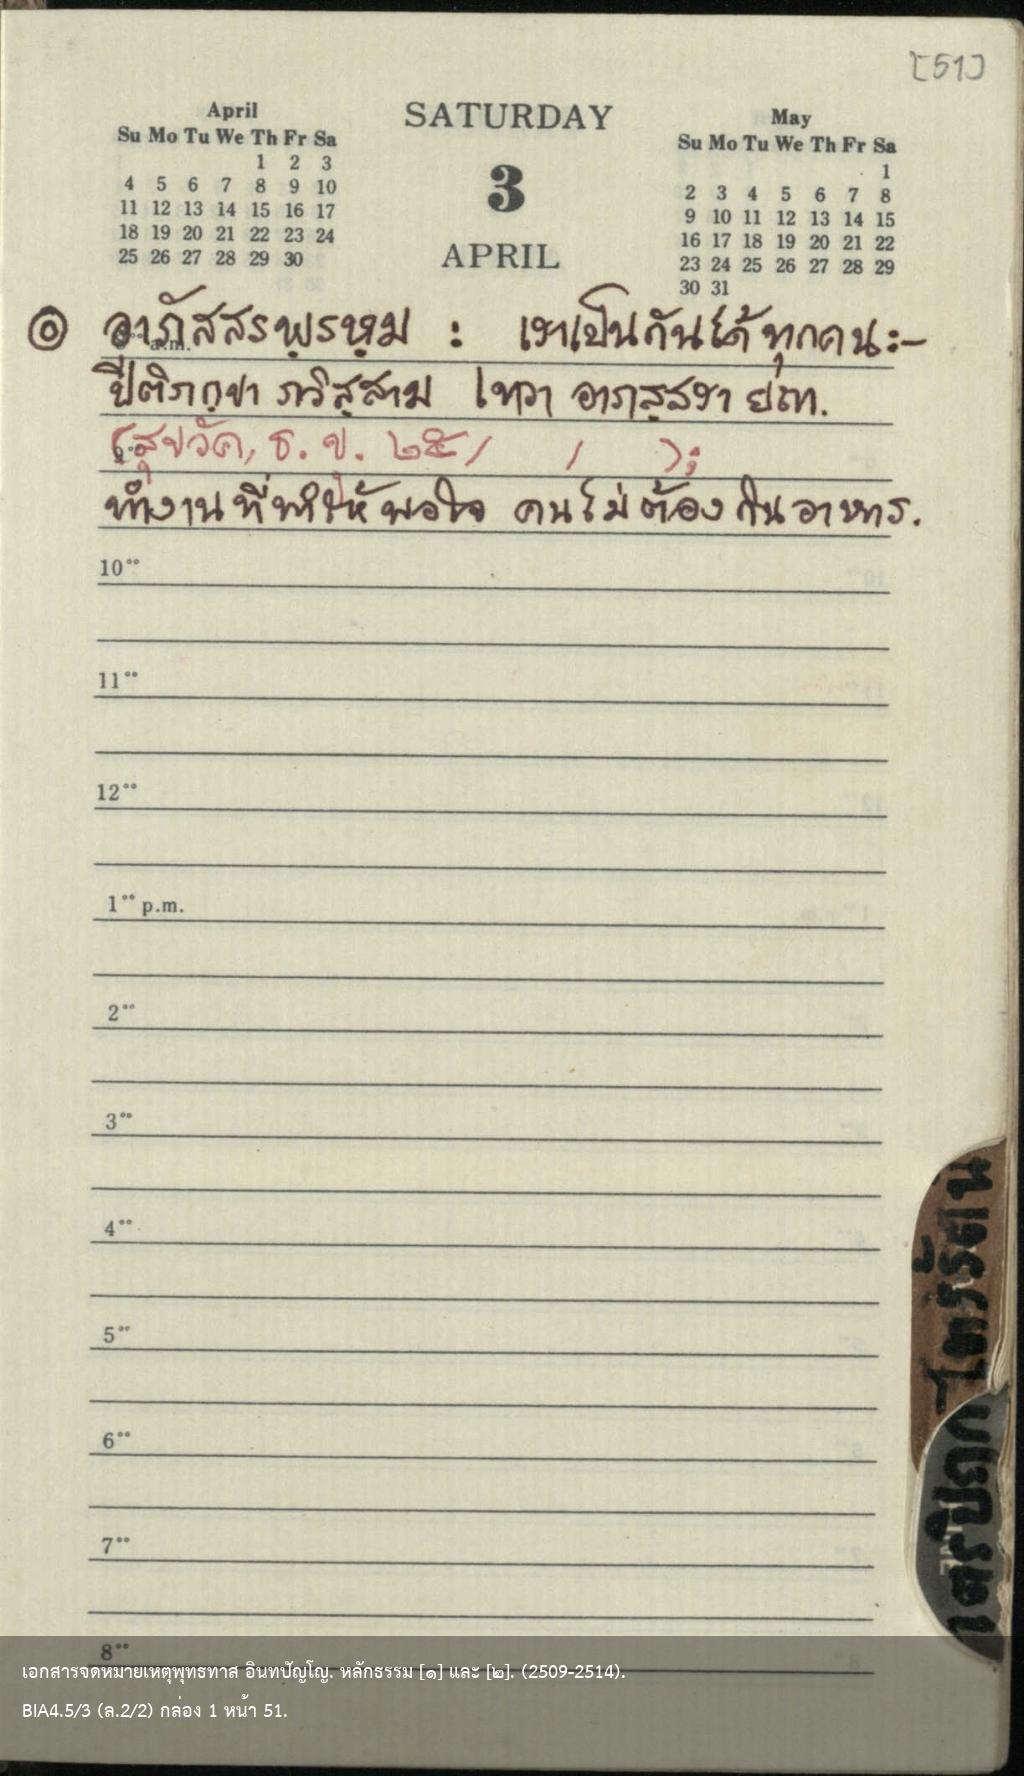 [51]
April
Su Mo Tu We Th Fr Sa
1 2 3
4 5 6 7 8 9 10
11 12 13 14 15 16 17
18 19 20 21 22 23 24
25 26 27 28 29 30
SATURDAY
3
APRIL
May
Su Mo Tu We Th Fr Sa
1
2 3 4 5 6 7 8
9 10 11 12 13 14 15
16 17 18 19 20 21 22
23 24 25 26 27 28 29
30 31
อาภัสสรพฺรหฺม : เราเป็นกันได้ทุกคน:-
ปีติภกฺขา ภวิสฺสาม เทวา อาภสฺสรา ยถา.
(สุขวัค, ธ. ข. ๒๕/ / );
ทำงานที่ทำให้พอใจ คนไม่ต้องกินอาหาร.
10⁰⁰
11⁰⁰
12⁰⁰
1⁰⁰ p.m.
2⁰⁰
3⁰⁰
4⁰⁰
5⁰⁰
6⁰⁰
7⁰⁰
8⁰⁰
ไตรปิฎก
เอกสารจดหมายเหตุพุทธทาส อินทปัญโญ. หลักธรรม [๑] และ [๒]. (2509-2514).
BIA4.5/3 (ล.2/2) กล่อง 1 หน้า 51.